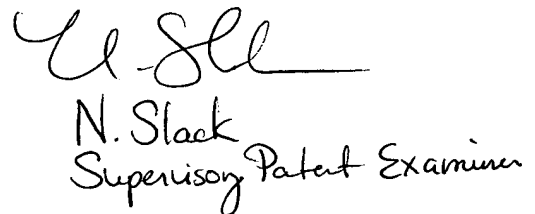 N. Slack
Supervisory Patent Examiner